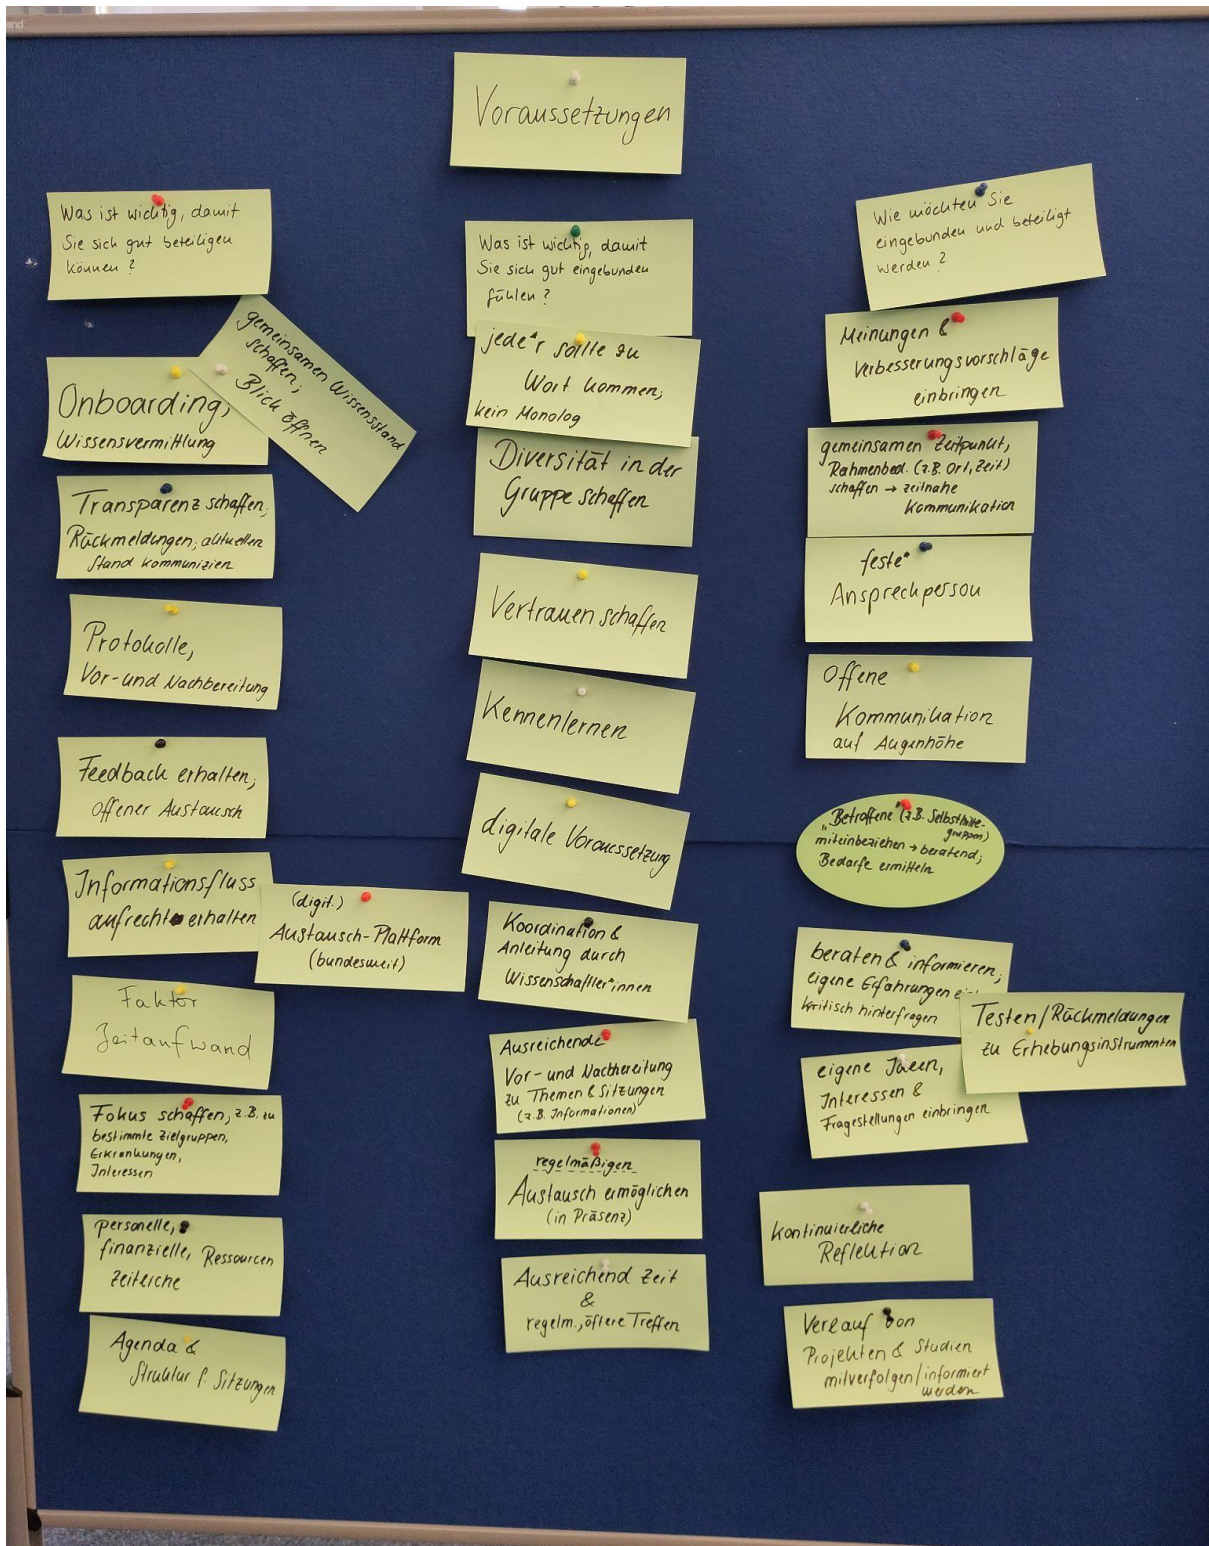 Voraussetzungen
Was ist wichtig, damit
Sie sich gut beteiligen
können?
Onboarding,
Wissensvermittlung
gemeinsamen Wissensstand
schaffen;
Blick öffnen
Transparenz schaffen,
Rückmeldungen, aktuellen
Stand kommunizien
Protokolle,
Vor- und Nachbereitung
Feedback erhalten,
Offener Austausch
Informationsfluss
aufrecht erhalten
(digit.)
Austausch-Plattform
(bundesweit)
Faktor
Zeitaufwand
Fokus schaffen, z.B. zu
bestimmte Zielgruppen,
Erkrankungen,
Interessen
personelle,
finanzielle, Ressourcen
zeitliche
Agenda &
Struktur f. Sitzungen
Was ist wichtig, damit
Sie sich gut eingebunden
fühlen?
jede*r sollte zu
Wort kommen;
kein Monolog
Diversität in der
Gruppe schaffen
Vertrauen schaffen
Kennenlernen
digitale Voraussetzung
Koordination &
Anleitung durch
Wissenschaftler*innen
Ausreichende
Vor- und Nachbereitung
zu Themen & Sitzungen
(z.B. Informationen)
regelmäßigen
Austausch ermöglichen
(in Präsenz)
Ausreichend Zeit
&
regelm., öftere Treffen
Wie möchten Sie
eingebunden und beteiligt
werden?
Meinungen &
Verbesserungsvorschläge
einbringen
gemeinsamen Zeitpunkt,
Rahmenbed. (z.B. Ort, Zeit)
schaffen → zeitnahe
Kommunikation
feste*
Ansprechperson
Offene
Kommunikation
auf Augenhöhe
"Betroffene (z.B. Selbsthilfe-
gruppen)
miteinbeziehen → beratend;
Bedarfe ermitteln
beraten & informieren;
eigene Erfahrungen
kritisch hinterfragen
Testen/Rückmeldungen
zu Erhebungsinstrumenten
eigene Ideen,
Interessen &
Fragestellungen einbringen
kontinuierliche
Reflektion
Verlauf von
Projekten & Studien
mitverfolgen/informiert
werden